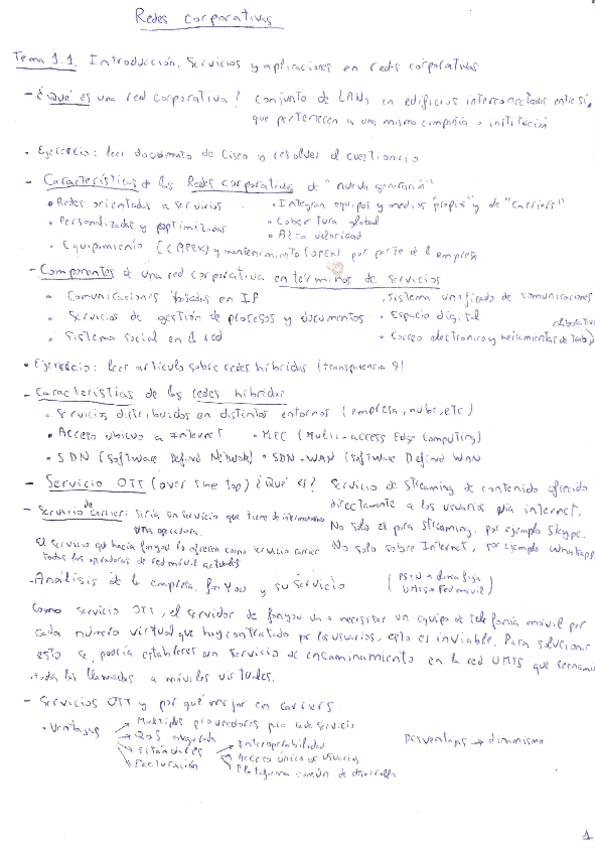 Redes corporativas
Tema 1.1. Introducción, Servicios y aplicaciones en redes corporativas
- ¿Qué es una red corporativa? conjunto de LANs en edificios interconectados entre sí,
que pertenecen a una misma compañía o institución
• Ejercicio: leer documento de Cisco y resolver el cuestionario
- Características de las Redes corporativas de "nueva generación"
• Redes orientadas a servicios
• Integran equipos y medios "propios" y de "carriers"
• Personalizadas y optimizadas
• Cobertura global
• Alta velocidad
• Equipamiento (CAPEX) y mantenimiento (OPEX) por parte de la empresa
- Componentes de una red corporativa en términos de servicios
• Comunicaciones basadas en IP
• Sistema unificado de comunicaciones
• Servicios de gestión de procesos y documentos
• Espacio digital colaborativo
• Sistema social en el red
• Correo electronico y herramientas de trabajo
• Ejercicio: leer artículo sobre redes híbridas (transparencia 9)
- Características de las redes híbridas
• Servicios distribuidos en distintos entornos (empresa, nube, etc)
• Acceso ubicuo a Internet • MEC (Multi-access Edge Computing)
• SDN (Software Defined Network) • SDN-WAN (Software Defined WAN
- Servicio OTT (over the top) ¿Qué es? Servicio de streaming de contenido ofrecido
directamente a los usuarios vía internet.
No solo es para streaming, por ejemplo Skype.
No solo sobre Internet, por ejemplo whatsapp.
- Servicio de carrier: sería un servicio que tiene de intermediario
una operadora.
El servicio que hacía fonyou lo ofrecen como servicio carrier
todas las operadoras de red móvil actuales
- Análisis de la empresa fonYou y su servicio (PSTN → línea fija
UMTS → red móvil)
Como servicio OTT, el servidor de fonyou va a necesitar un equipo de telefonía móvil por
cada número virtual que hay contratado por los usuarios, esto es inviable. Para solucionar
esto se podría establecer un servicio de encaminamiento en la red UMTS que
todas las llamadas a móviles virtuales.
- Servicios OTT y por qué mejor en carriers.
• Ventajas → Multiples proveedores para cada servicio
→ QoS asegurada
→ Estándares → Interoperabilidad
→ Acceso único de usuarios
→ Plataforma común de desarrollo
→ Facturación
Desventajas → dinamismo
1